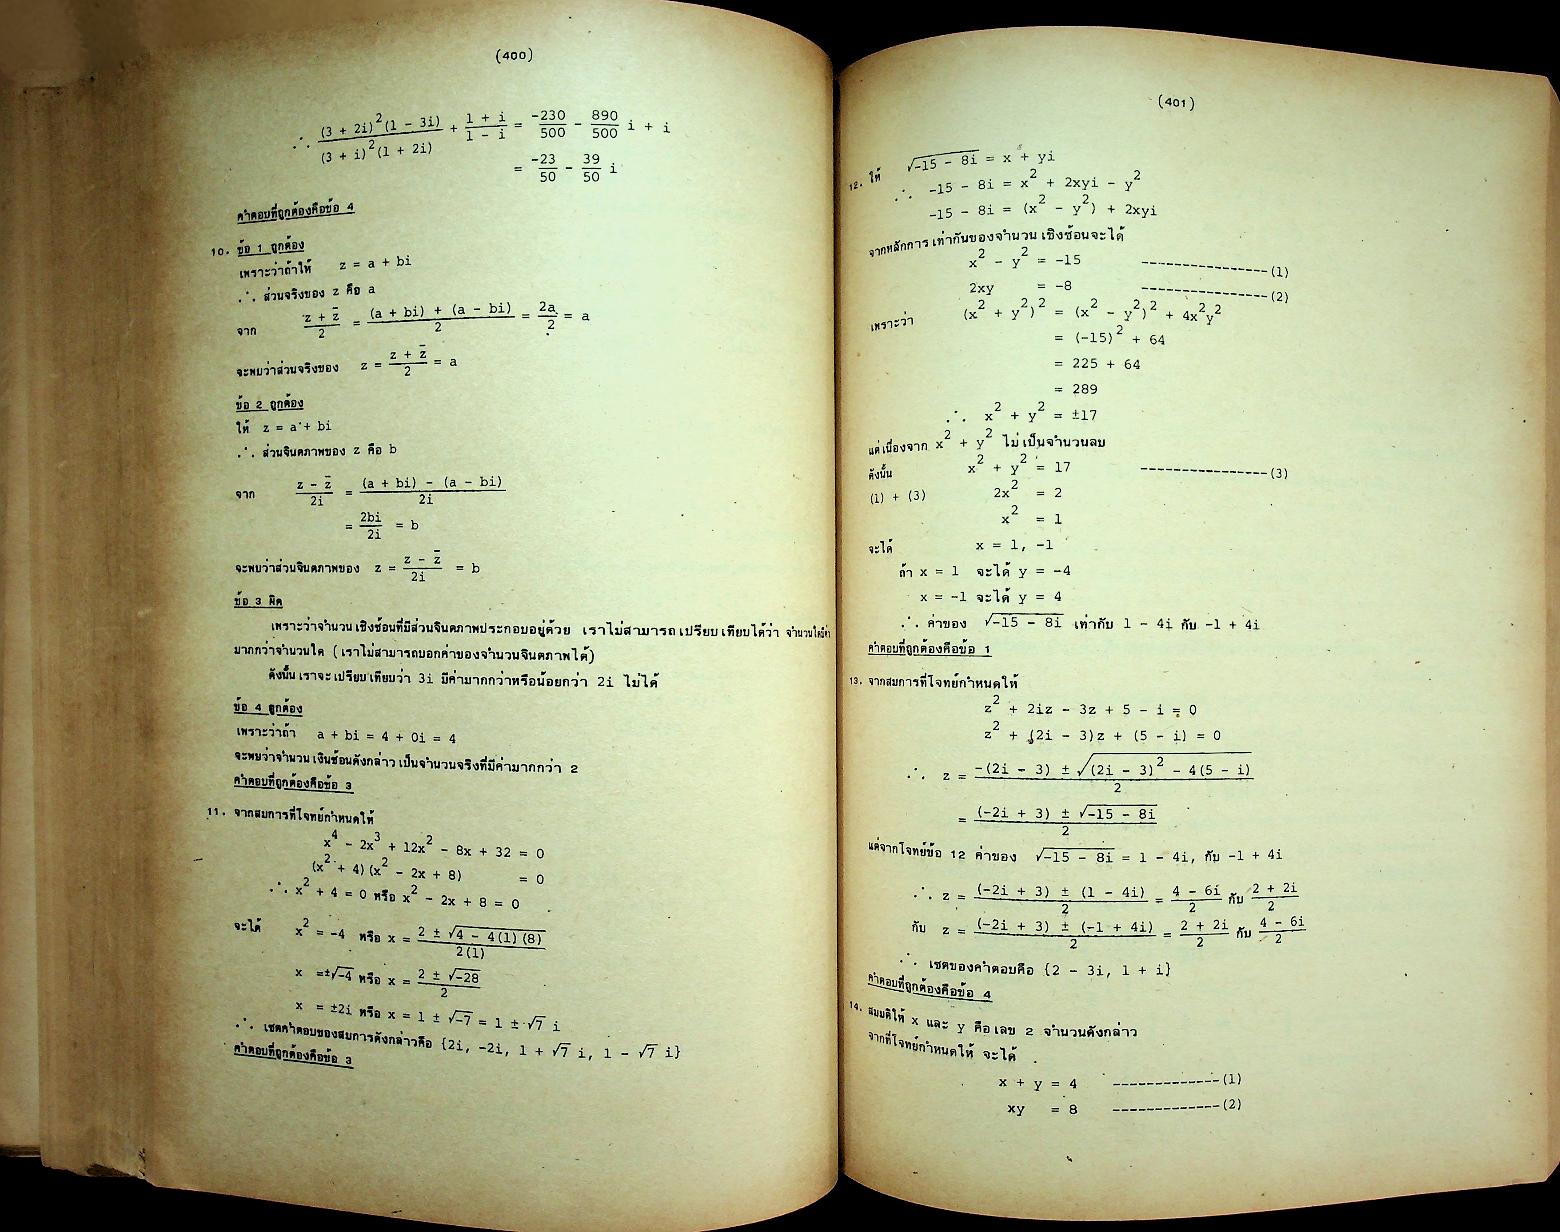 (400)
∴ (3 + 2i)²(1 - 3i) / (3 + i)²(1 + 2i) + (1 + i)/(1 - i) = -230/500 - 890/500 i + i
= -23/50 - 39/50 i
คำตอบที่ถูกต้องคือข้อ 4
10. ข้อ 1 ถูกต้อง
เพราะว่าถ้าให้ z = a + bi
∴ ส่วนจริงของ z คือ a
จาก (z + z̄)/2 = ((a + bi) + (a - bi))/2 = 2a/2 = a
จะพบว่าส่วนจริงของ z = (z + z̄)/2 = a
ข้อ 2 ถูกต้อง
ให้ z = a + bi
∴ ส่วนจินตภาพของ z คือ b
จาก (z - z̄)/2i = ((a + bi) - (a - bi))/2i
= 2bi/2i = b
จะพบว่าส่วนจินตภาพของ z = (z - z̄)/2i = b
ข้อ 3 ผิด
เพราะว่าจำนวนเชิงซ้อนที่มีส่วนจินตภาพประกอบอยู่ด้วย เราไม่สามารถเปรียบเทียบได้ว่า จำนวนใดมีค่า
มากกว่าจำนวนใด (เราไม่สามารถบอกค่าของจำนวนจินตภาพได้)
ดังนั้นเราจะเปรียบเทียบว่า 3i มีค่ามากกว่าหรือน้อยกว่า 2i ไม่ได้
ข้อ 4 ถูกต้อง
เพราะว่าถ้า a + bi = 4 + 0i = 4
จะพบว่าจำนวนเงินซ้อนดังกล่าวเป็นจำนวนจริงที่มีค่ามากกว่า 2
คำตอบที่ถูกต้องคือข้อ 3
11. จากสมการที่โจทย์กำหนดให้
x⁴ - 2x³ + 12x² - 8x + 32 = 0
(x² + 4)(x² - 2x + 8) = 0
∴ x² + 4 = 0 หรือ x² - 2x + 8 = 0
จะได้ x² = -4 หรือ x = (2 ± √(4 - 4(1)(8)))/2(1)
x = ±√-4 หรือ x = (2 ± √-28)/2
x = ±2i หรือ x = 1 ± √-7 = 1 ± √7 i
∴ เซตคำตอบของสมการดังกล่าวคือ {2i, -2i, 1 + √7 i, 1 - √7 i}
คำตอบที่ถูกต้องคือข้อ 3
(401)
12. ให้ √(-15 - 8i) = x + yi
∴ -15 - 8i = x² + 2xyi - y²
-15 - 8i = (x² - y²) + 2xyi
จากหลักการเท่ากันของจำนวนเชิงซ้อนจะได้
x² - y² = -15 ---------------(1)
2xy = -8 ---------------(2)
เพราะว่า (x² + y²)² = (x² - y²)² + 4x²y²
= (-15)² + 64
= 225 + 64
= 289
∴ x² + y² = ±17
แต่เนื่องจาก x² + y² ไม่เป็นจำนวนลบ
ดังนั้น x² + y² = 17 ---------------(3)
(1) + (3) 2x² = 2
x² = 1
จะได้ x = 1, -1
ถ้า x = 1 จะได้ y = -4
x = -1 จะได้ y = 4
∴ ค่าของ √(-15 - 8i) เท่ากับ 1 - 4i กับ -1 + 4i
คำตอบที่ถูกต้องคือข้อ 1
13. จากสมการที่โจทย์กำหนดให้
z² + 2iz - 3z + 5 - i = 0
z² + (2i - 3)z + (5 - i) = 0
∴ z = (-(2i - 3) ± √((2i - 3)² - 4(5 - i)))/2
= ((-2i + 3) ± √(-15 - 8i))/2
แต่จากโจทย์ข้อ 12 ค่าของ √(-15 - 8i) = 1 - 4i, กับ -1 + 4i
∴ z = ((-2i + 3) ± (1 - 4i))/2 = (4 - 6i)/2 กับ (2 + 2i)/2
กับ z = ((-2i + 3) ± (-1 + 4i))/2 = (2 + 2i)/2 กับ (4 - 6i)/2
∴ เซตของคำตอบคือ {2 - 3i, 1 + i}
คำตอบที่ถูกต้องคือข้อ 4
14. สมมติให้ x และ y คือเลข 2 จำนวนดังกล่าว
จากที่โจทย์กำหนดให้ จะได้
x + y = 4 -------------(1)
xy = 8 -------------(2)